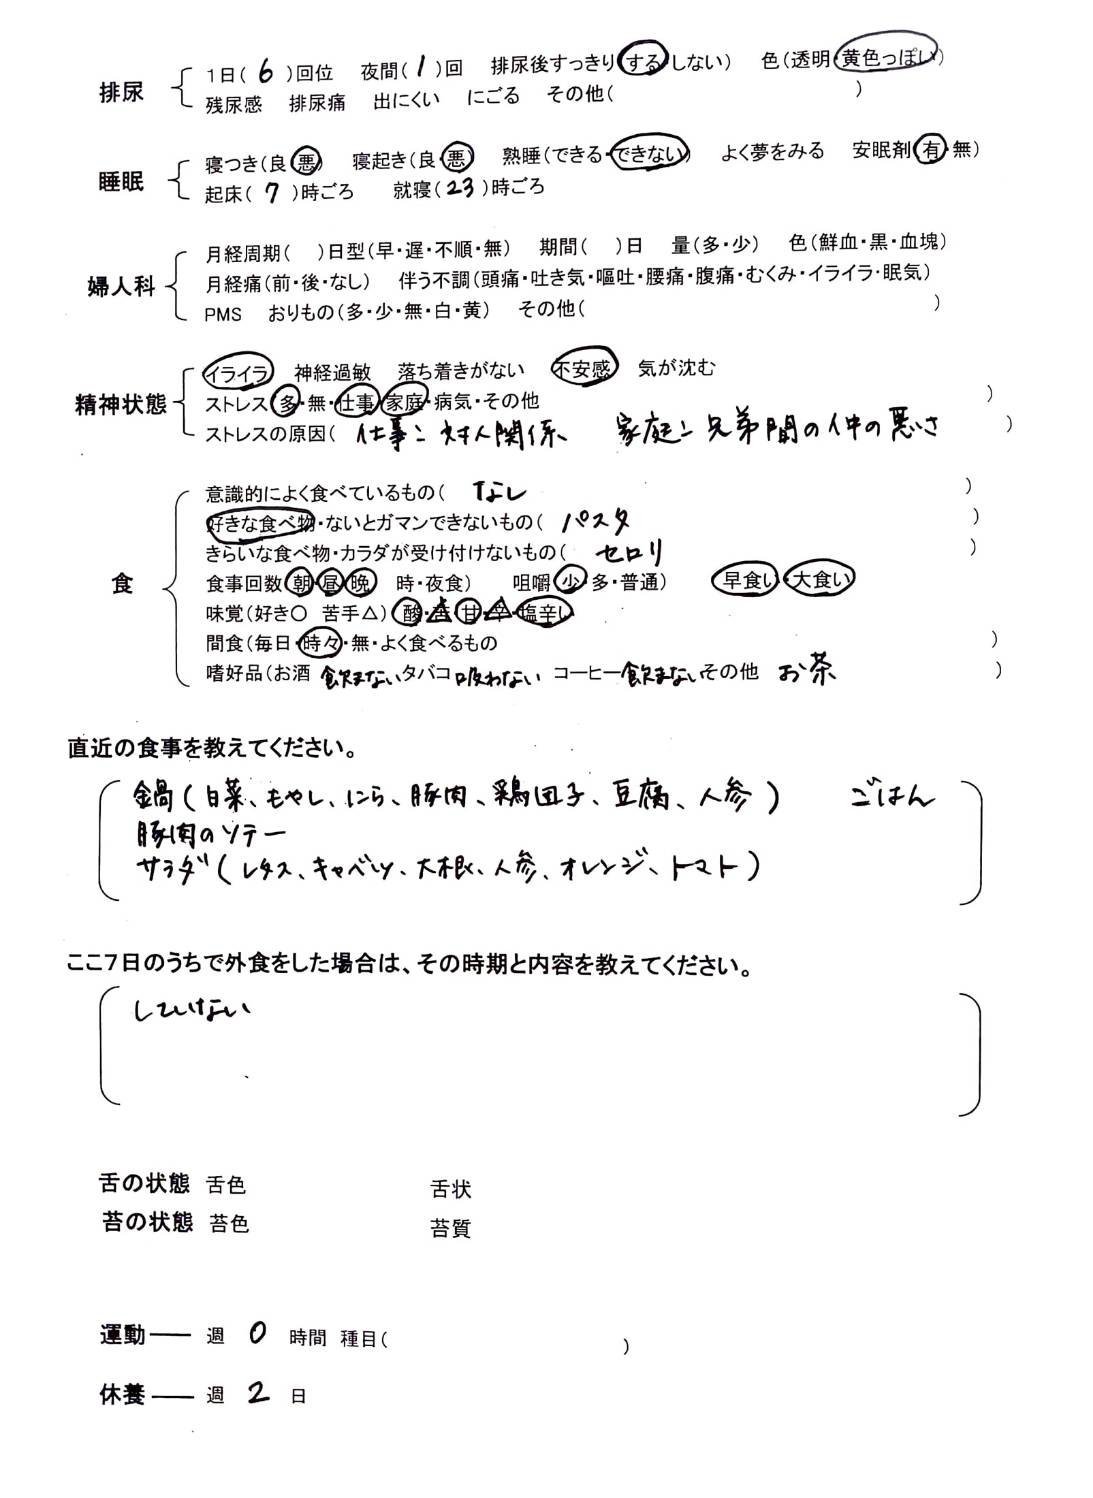 排尿
1日( 6 )回位 夜間( 1 )回 排尿後すっきり(する・しない) 色(透明・黄色っぽい)
残尿感 排尿痛 出にくい にごる その他( )
睡眠
寝つき(良・悪) 寝起き(良・悪) 熟睡(できる・できない) よく夢をみる 安眠剤(有・無)
起床( 7 )時ごろ 就寝( 23 )時ごろ
婦人科
月経周期( )日型(早・遅・不順・無) 期間( )日 量(多・少) 色(鮮血・黒・血塊)
月経痛(前・後・なし) 伴う不調(頭痛・吐き気・嘔吐・腰痛・腹痛・むくみ・イライラ・眠気)
PMS おりもの(多・少・無・白・黄) その他( )
精神状態
イライラ 神経過敏 落ち着きがない 不安感 気が沈む
ストレス(多・無・仕事・家庭・病気・その他 )
ストレスの原因( 仕事:対人関係、 家庭:兄弟間の仲の悪さ )
食
意識的によく食べているもの( なし )
好きな食べ物・ないとガマンできないもの( パスタ )
きらいな食べ物・カラダが受け付けないもの( セロリ )
食事回数(朝・昼・晩 時・夜食) 咀嚼(少・多・普通) 早食い・大食い
味覚(好き〇 苦手△)(酸・苦・甘・辛・塩辛い
間食(毎日・時々・無・よく食べるもの )
嗜好品(お酒 飲まない タバコ 吸わない コーヒー 飲まない その他 お茶 )
直近の食事を教えてください。
鍋(白菜、もやし、にら、豚肉、鶏団子、豆腐、人参) ごはん
豚肉のソテー
サラダ(レタス、キャベツ、大根、人参、オレンジ、トマト)
ここ7日のうちで外食をした場合は、その時期と内容を教えてください。
していない
舌の状態 舌色 舌状
苔の状態 苔色 苔質
運動── 週 0 時間 種目( )
休養── 週 2 日